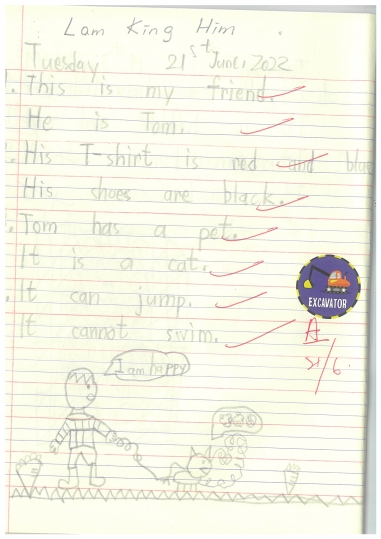 Lam King Him
Tuesday 21st June, 2022
1. This is my friend.
He is Tom.
2. His T-shirt is red and blue
His shoes are black.
3. Tom has a pet.
It is a cat.
4. It can jump.
It cannot swim.
EXCAVATOR
A
21/6
I am happy